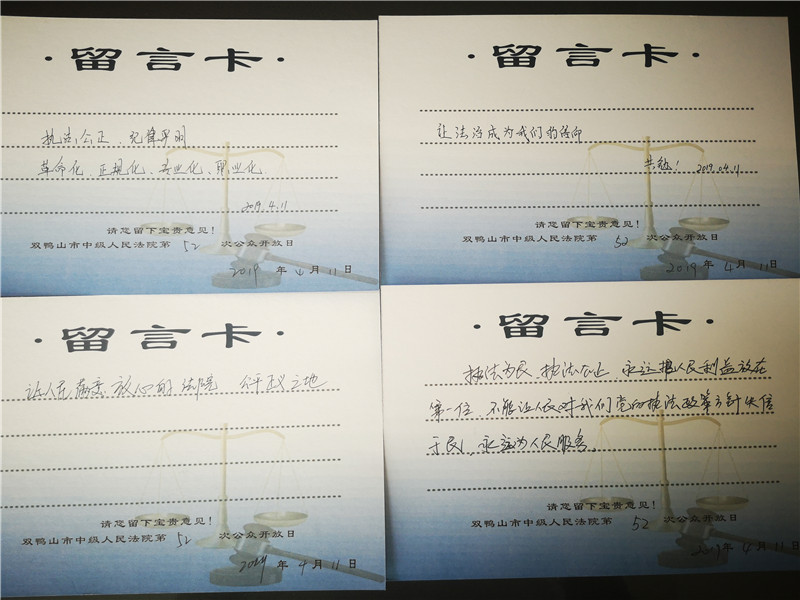 ·留言卡·
执法公正、纪律严明
革命化、正规化、专业化、职业化
2019.4.11
请您留下宝贵意见！
双鸭山市中级人民法院第52次公众开放日
2019年4月11日
·留言卡·
让法治成为我们的信仰
共勉！ 2019.04.11
请您留下宝贵意见！
双鸭山市中级人民法院第52次公众开放日
2019年4月11日
·留言卡·
让人民满意 放心的法院 公平正义之地
请您留下宝贵意见！
双鸭山市中级人民法院第52次公众开放日
2019年4月11日
·留言卡·
执法为民 执法公正 永远把人民利益放在
第一位，不能让人民对我们党的执法政策方针失信
于民，永远为人民服务。
请您留下宝贵意见！
双鸭山市中级人民法院第52次公众开放日
2019年4月11日